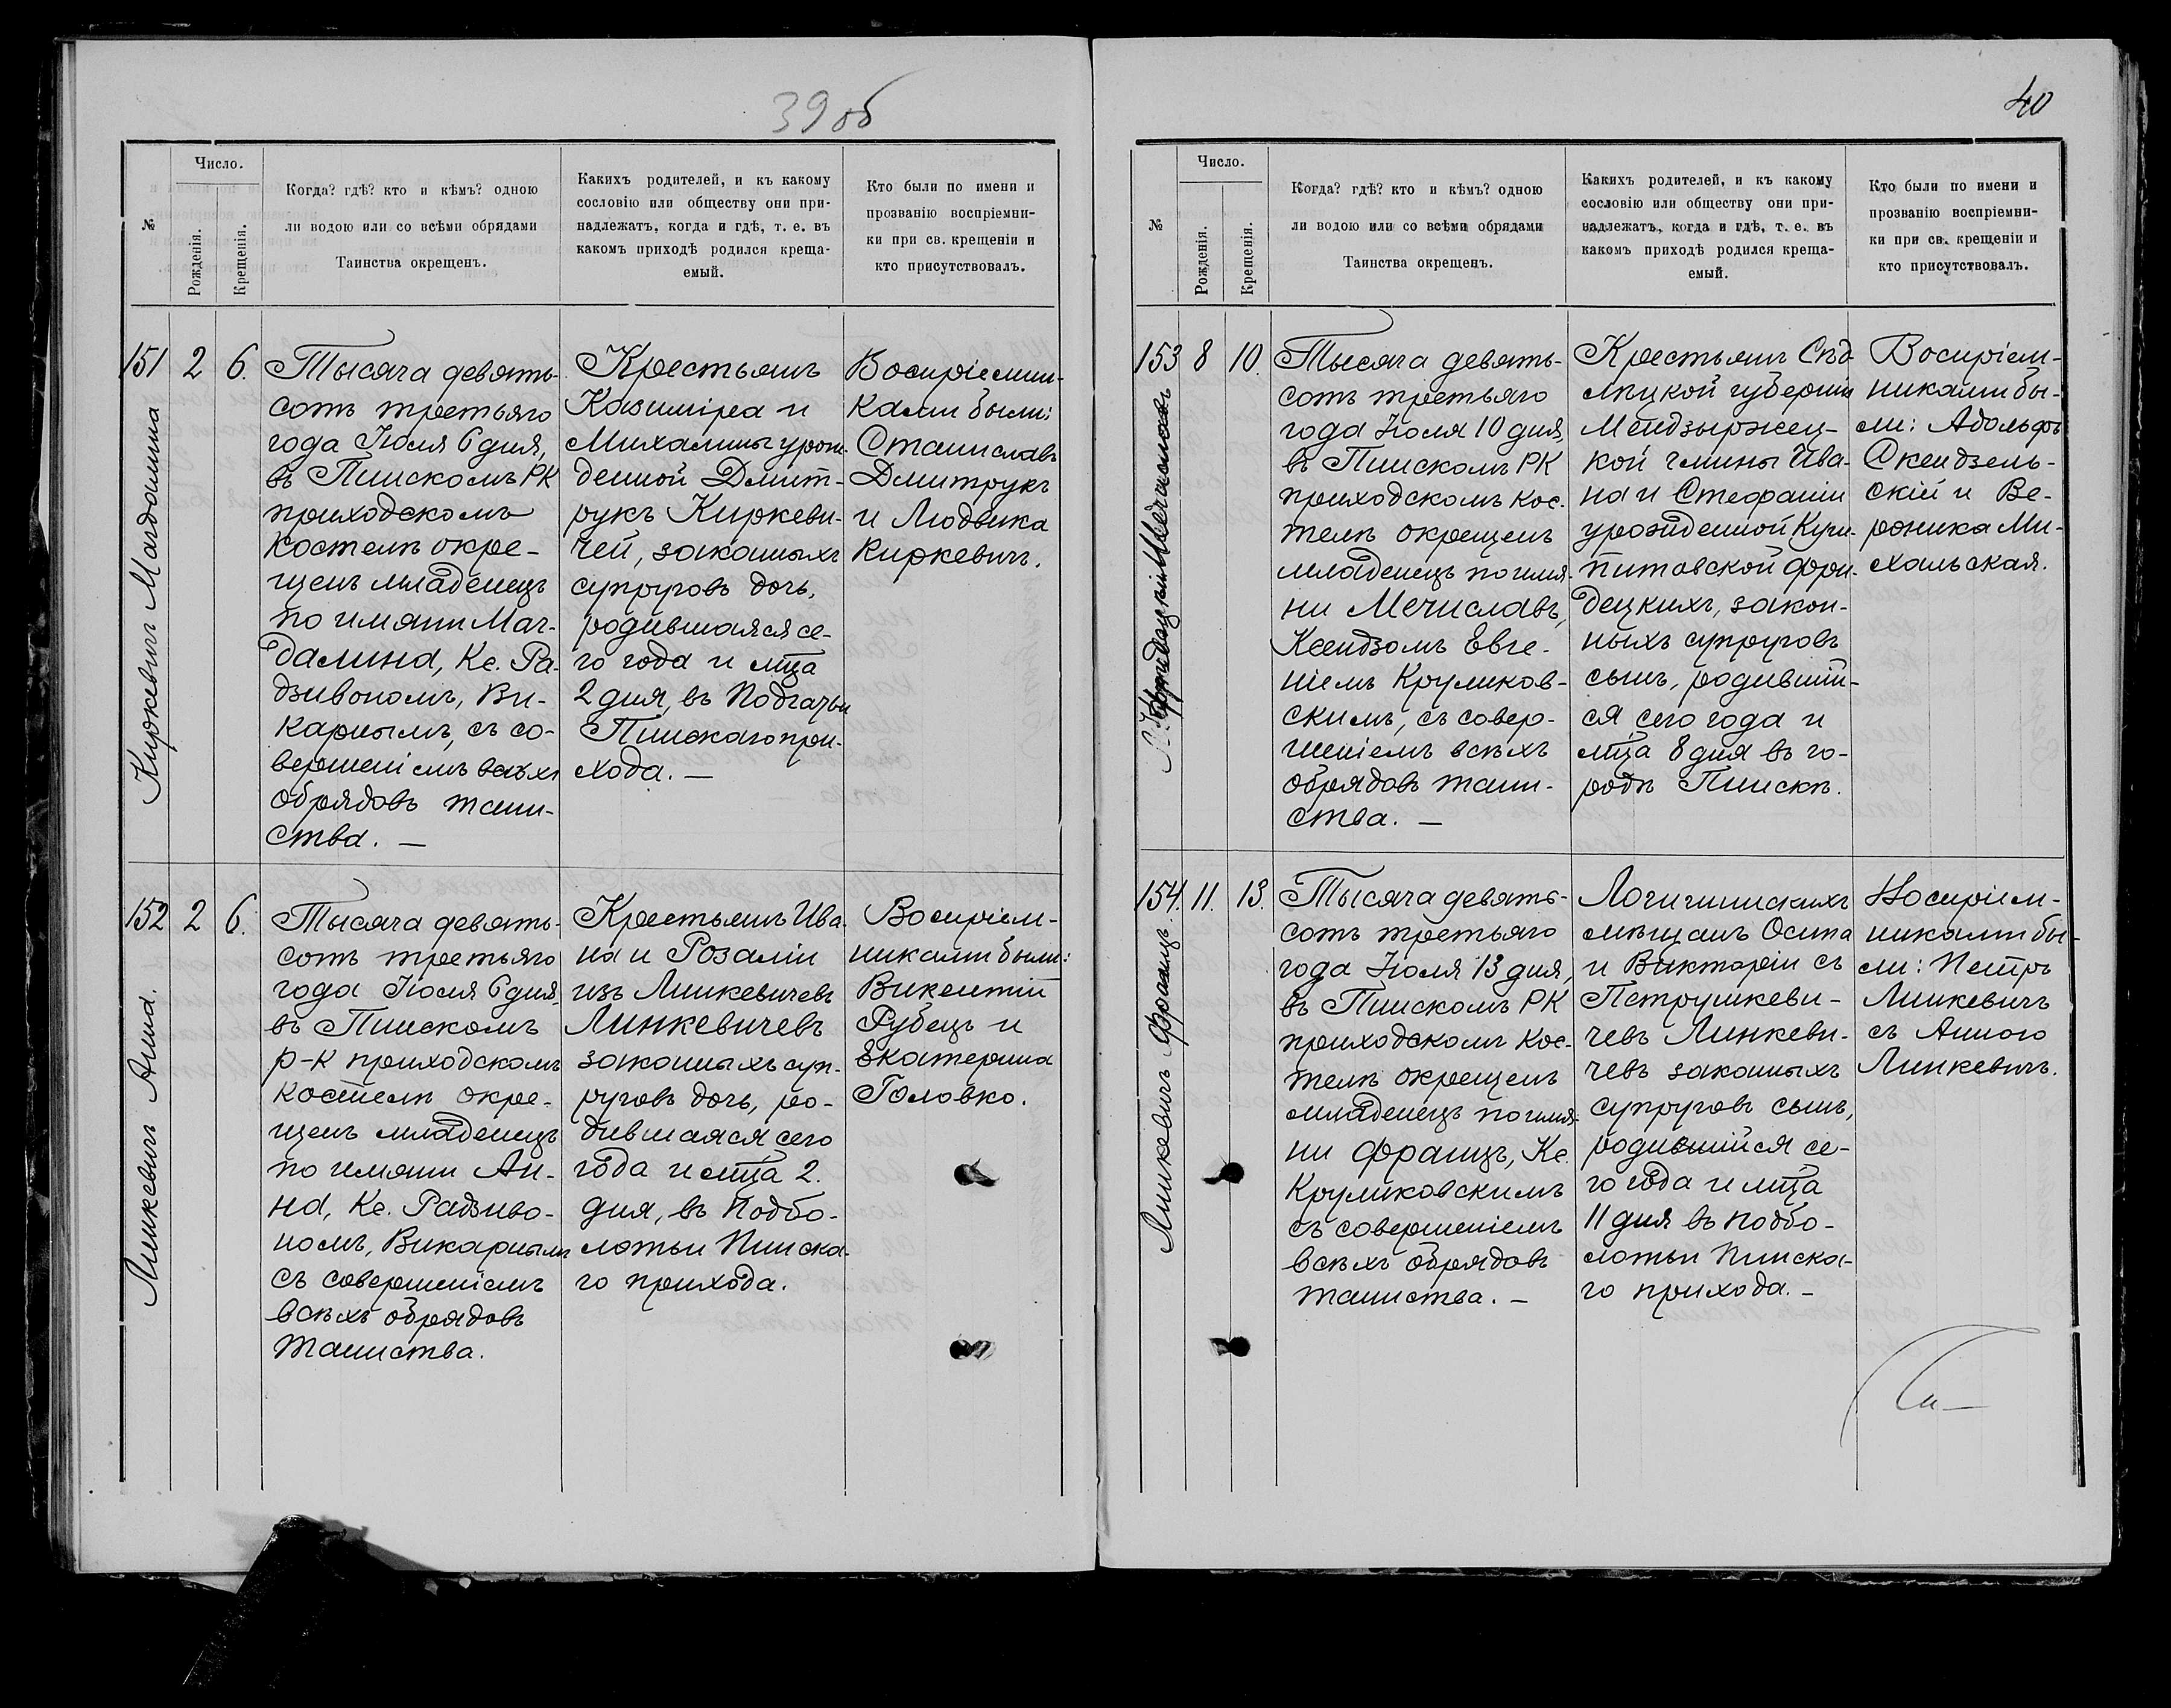 39 об
№
Число.
Рожденія.
Крещенія.
Когда? гдѣ? кто и кѣмъ? одною
ли водою или со всѣми обрядами
Таинства окрещенъ.
Какихъ родителей, и къ какому
сословію или обществу они при-
надлежатъ, когда и гдѣ, т. е. въ
какомъ приходѣ родился креща-
емый.
Кто были по имени и
прозванію воспріемни-
ки при св. крещеніи и
кто присутствовалъ.
151
Киркевичъ Магдалина
2
6.
Тысяча девять-
сотъ третьяго
года Іюля 6 дня,
въ Пинскомъ РК
приходскомъ
Костелѣ окре-
щенъ младенецъ
по имяни Маг-
далина, Кс. Ра-
дзивономъ, Ви-
карнымъ, съ со-
вершеніемъ всѣхъ
обрядовъ таин-
ства. —
Крестьянъ
Казиміра и
Михалины урож-
денной Дмит-
рукъ Киркеви-
чей, законныхъ
супруговъ дочь,
родившаяся се-
го года и мца
2 дня, въ Подгачьи
Пинскаго при-
хода. —
Воспріемни-
ками были:
Станиславъ
Дмитрукъ
и Людвика
Киркевичъ.
152
Линкевичъ Анна.
2
6.
Тысяча девять-
сотъ третьяго
года Іюля 6 дня,
въ Пинскомъ
р-к приходскомъ
костелѣ окре-
щенъ младенецъ
по имяни Ан-
на, Кс. Радзиво-
номъ, Викарнымъ
съ совершеніемъ
всѣхъ обрядовъ
Таинства.
Крестьянъ Ива-
на и Розаліи
изъ Линкевичевъ
Линкевичевъ
законныхъ суп-
руговъ дочь, ро-
дившаяся сего
года и мца 2.
дня, въ Подбо-
лотьи Пинска-
го прихода.
Воспріем-
никами были:
Викентій
Рубецъ и
Екатерина
Головко.
40
№
Число.
Рожденія.
Крещенія.
Когда? гдѣ? кто и кѣмъ? одною
ли водою или со всѣми обрядами
Таинства окрещенъ.
Какихъ родителей, и къ какому
сословію или обществу они при-
надлежатъ, когда и гдѣ, т. е. въ
какомъ приходѣ родился креща-
емый.
Кто были по имени и
прозванію воспріемни-
ки при св. крещеніи и
кто присутствовалъ.
153
8
10.
Тысяча девять-
сотъ третьяго
года Іюля 10 дня,
въ Пинскомъ РК
приходскомъ Кос-
телѣ окрещенъ
младенецъ по имя-
ни Мечиславъ,
Ксендзомъ Евге-
ніемъ Круликов-
скимъ, съ совер-
шеніемъ всѣхъ
обрядовъ таин-
ства. —
Крестьянъ Сѣд-
лецкой губерніи
Мендзыржец-
кой гмины Ива-
на и Стефаніи
урожденной
Фри-
децкихъ, закон-
ныхъ супруговъ
сынъ, родившій-
ся сего года и
мца 8 дня въ го-
родѣ Пинскѣ.
Воспріем-
никами бы-
ли: Адольфъ
Скендзель-
скій и Ве-
роника Ми-
хальская.
154.
Линкевичъ Францъ.
11.
13.
Тысяча девять-
сотъ третьяго
года Іюля 13 дня,
въ Пинскомъ РК
приходскомъ Кос-
телѣ окрещенъ
младенецъ по имя-
ни Францъ, Кс.
Круликовскимъ
съ совершеніемъ
всѣхъ обрядовъ
таинства. —
Логишинскихъ
мѣщанъ Осипа
и Викторіи съ
Петрушкеви-
чевъ Линкеви-
чевъ законныхъ
супруговъ сынъ,
родившійся се-
го года и мца
11 дня въ Подбо-
лотьи Пинска-
го прихода. —
Воспріем-
никами бы-
ли: Петръ
Линкевичъ
съ Анною
Линкевичъ.